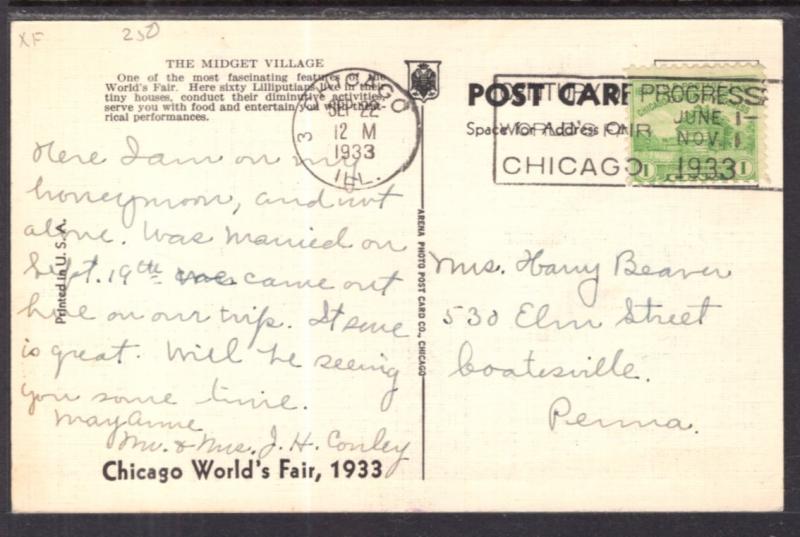 XF
250
THE MIDGET VILLAGE
One of the most fascinating features of the
World's Fair. Here sixty Lilliputians live in their
tiny houses, conduct their diminutive activities,
serve you with food and entertain you with theat-
rical performances.
CHICAGO
3
SEP 22
12 M
1933
ILL.
POST CARD
Space for Address Only
A CENTURY OF PROGRESS
WORLD'S FAIR
CHICAGO
JUNE 1-
NOV. 1
1933
1
1
Here I am on my
honeymoon, and not
alone. Was married on
Sept. 19th came out
here on our trip. It sure
is great. Will be seeing
you some time.
MayAnne
Mr. & Mrs. J. H. Conley
Mrs. Harry Beaver
530 Elm Street
Coatesville.
Penna.
Printed in U. S. A.
ARENA PHOTO POST CARD CO., CHICAGO
Chicago World's Fair, 1933